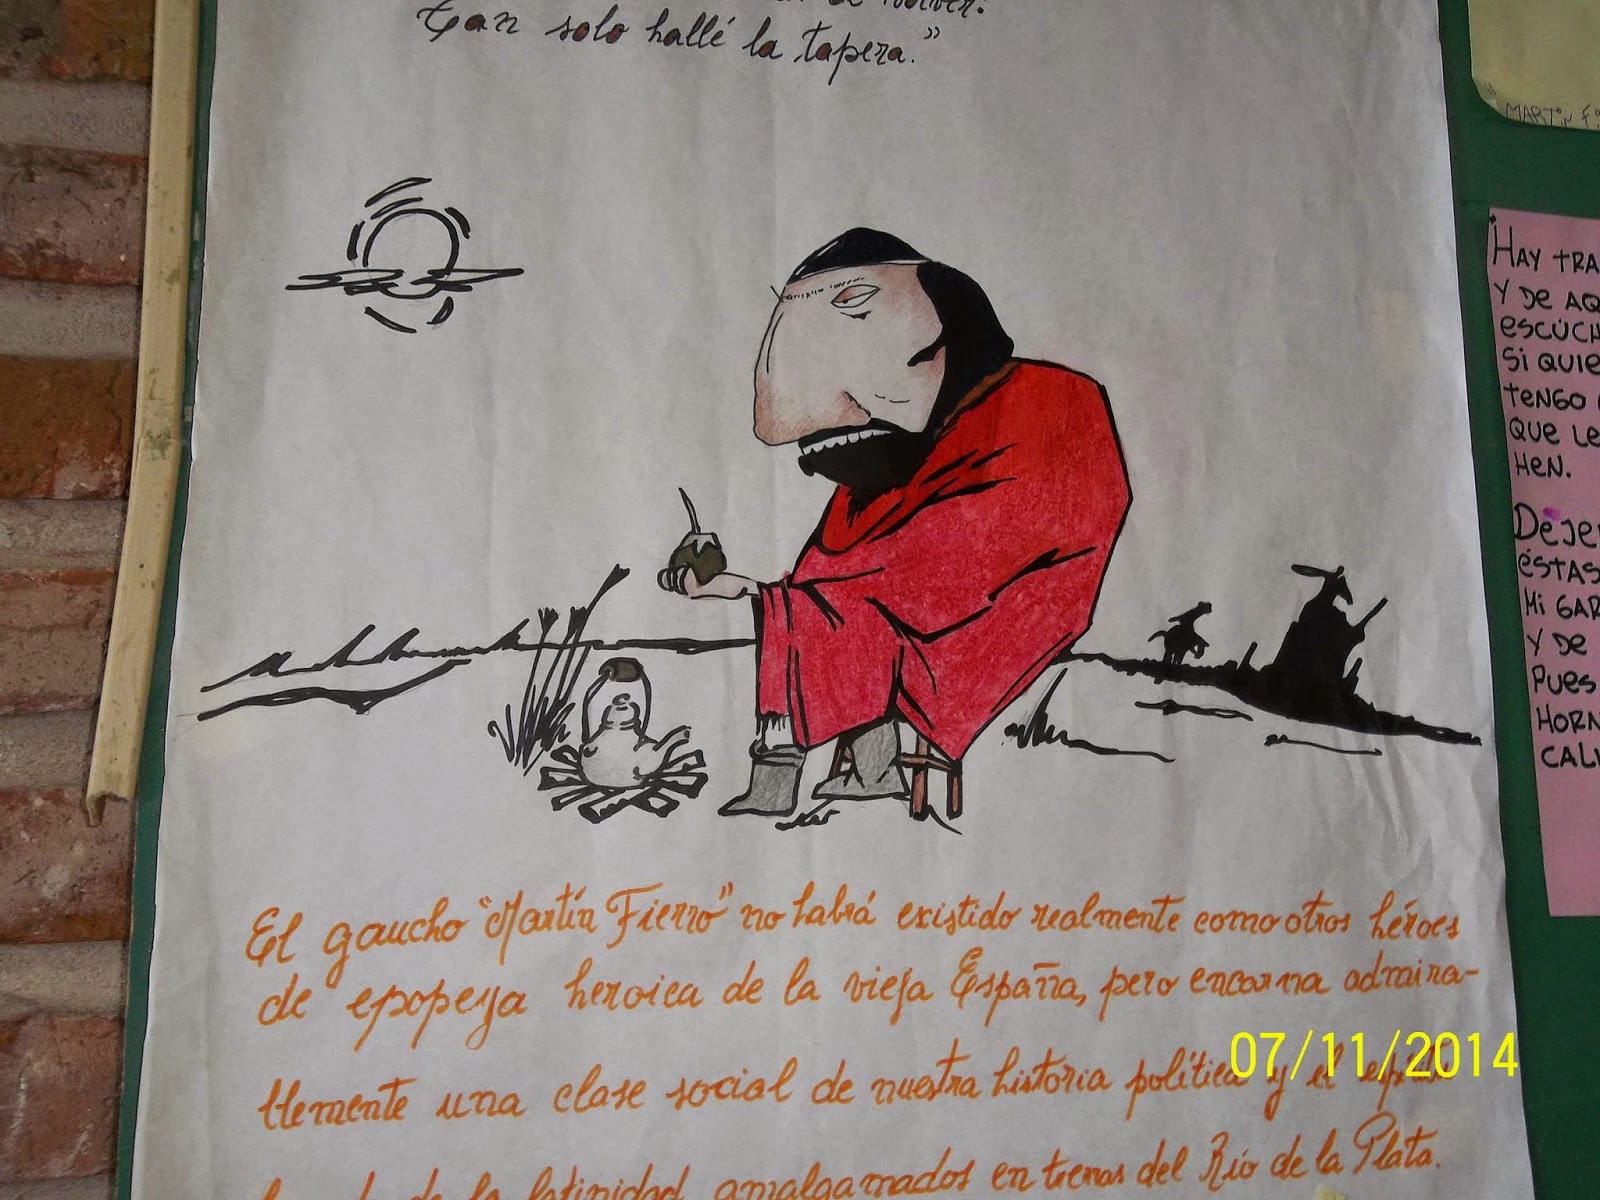 de volver:
tan solo hallé la tapera."
MARTIN
HAY TRA
Y DE AQ
ESCÚCH
SI QUIE
TENGO
QUE LE
HEN.
DEJE
ÉSTAS
MI GAR
Y DE
PUES
HORN
CALI
El gaucho "Martín Fierro" no habrá existido realmente como otros héroes
de epopeya heroica de la vieja España, pero encarna admira-
blemente una clase social de nuestra historia política y el
07/11/2014
de la latinidad amalgamados en tierras del Río de la Plata.